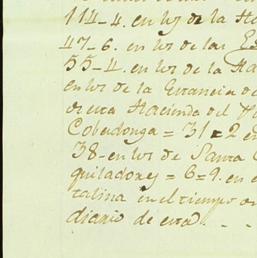 114-4. en los de la Ha
47-6. en los de las Es
55-4. en los de la Ha
en los de la Estancia de
de esta Hacienda del
Cobadonga = 31=2 en
38- en los de Santa C
quiladores = 6=9. en e
talina en el tiempo
diario de esta